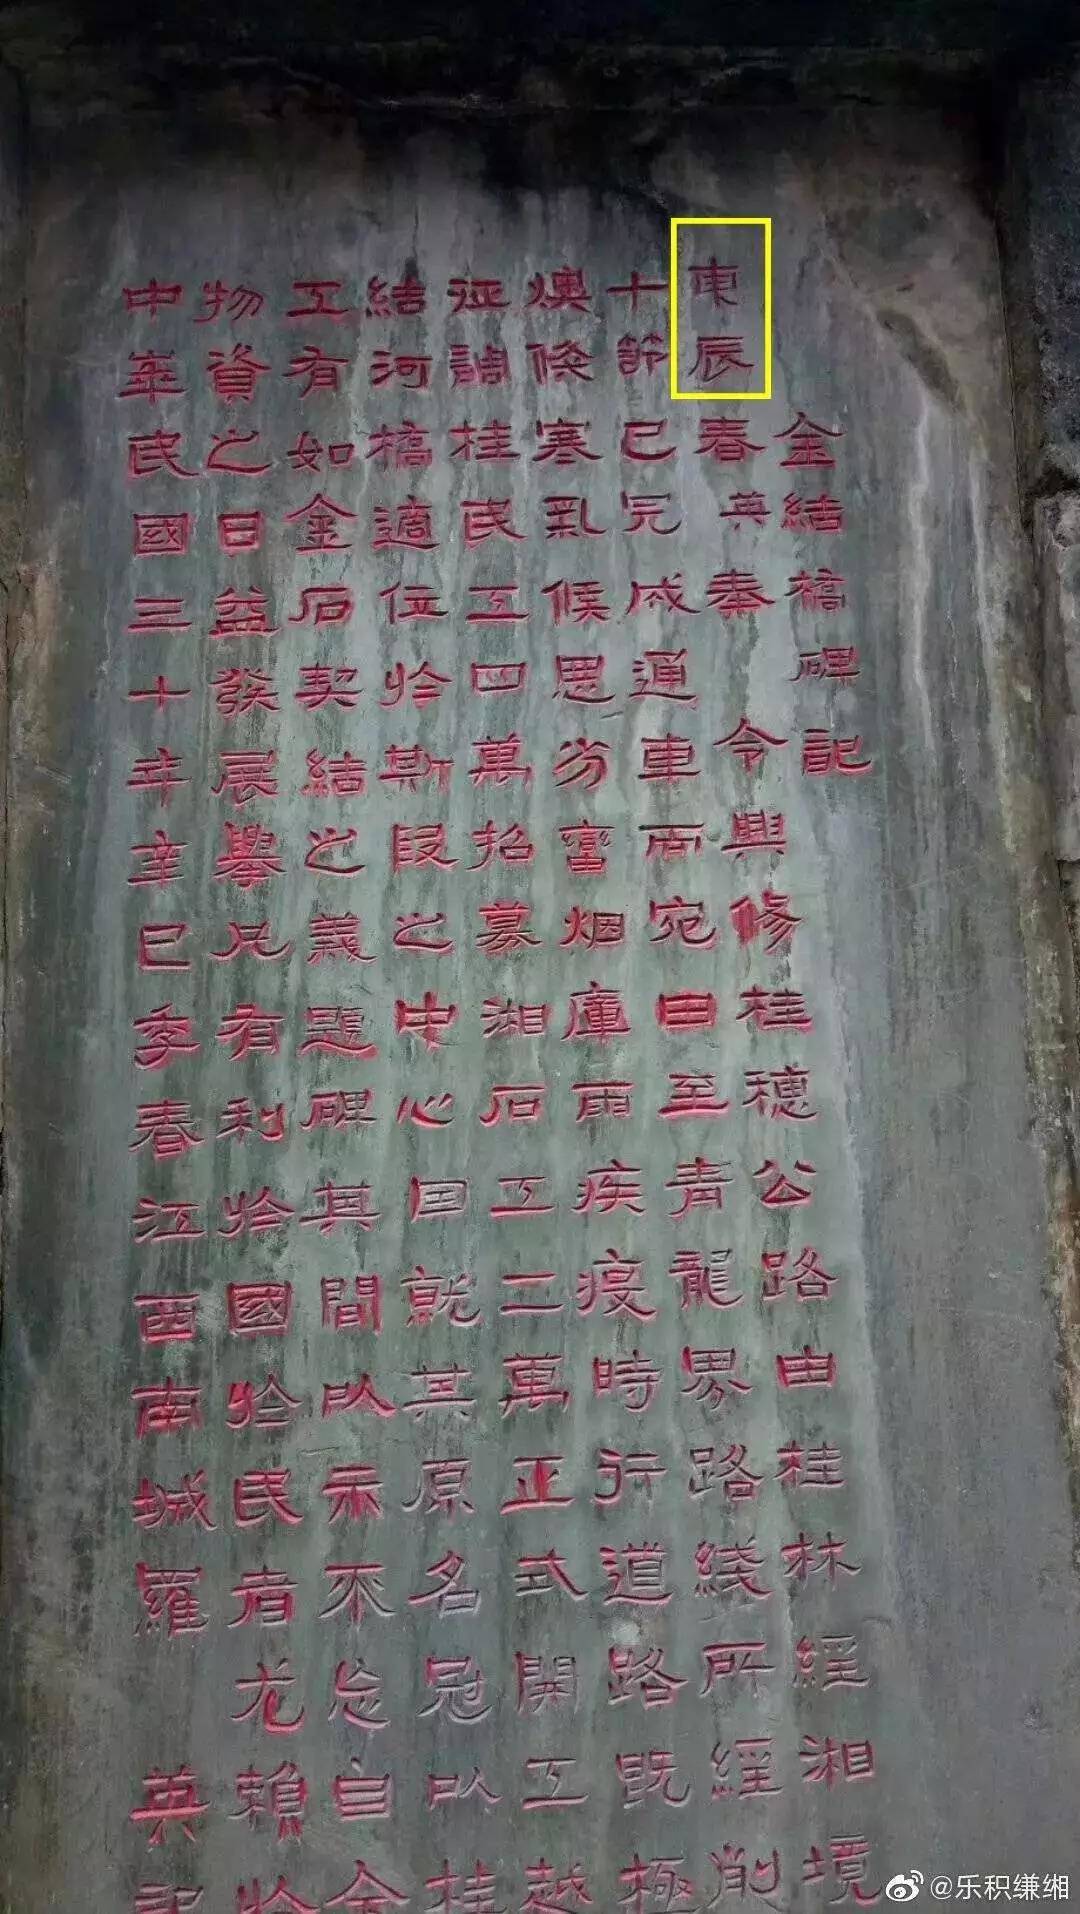 金結橋碑記
東辰春英奉令興修桂穗公路由桂林經湘境
十節已完成通車而宛田至青龍界路綫所經削
燠倏寒氣候思劣蠻烟庫雨疾疫時行道路既極
征調桂民工四萬招募湘石工二萬正式開工越
結河橋適位於斯段之中心因就其原名冠以桂
工有如金石契結之義題碑其間以示不忘自今
物資之日益發展舉凡有利於國於民者尤賴於
中華民國三十年辛巳季春江西南城羅英記
@乐积缣缃